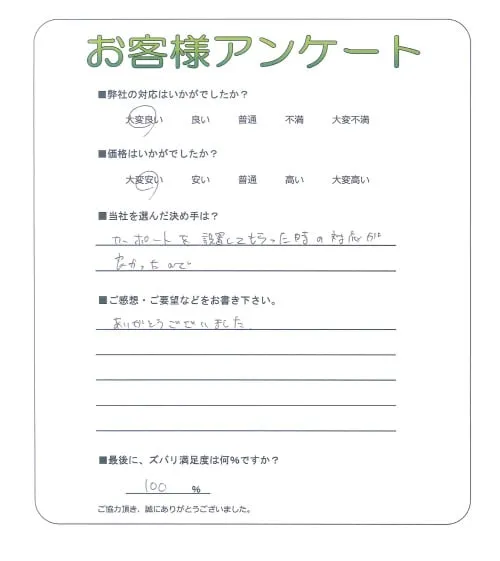 お客様アンケート
■弊社の対応はいかがでしたか？
大変良い 良い 普通 不満 大変不満
■価格はいかがでしたか？
大変安い 安い 普通 高い 大変高い
■当社を選んだ決め手は？
カーポートを設置してもらった時の対応が
良かったので
■ご感想・ご要望などをお書き下さい。
ありがとうございました。
■最後に、ズバリ満足度は何%ですか？
100 %
ご協力頂き、誠にありがとうございました。